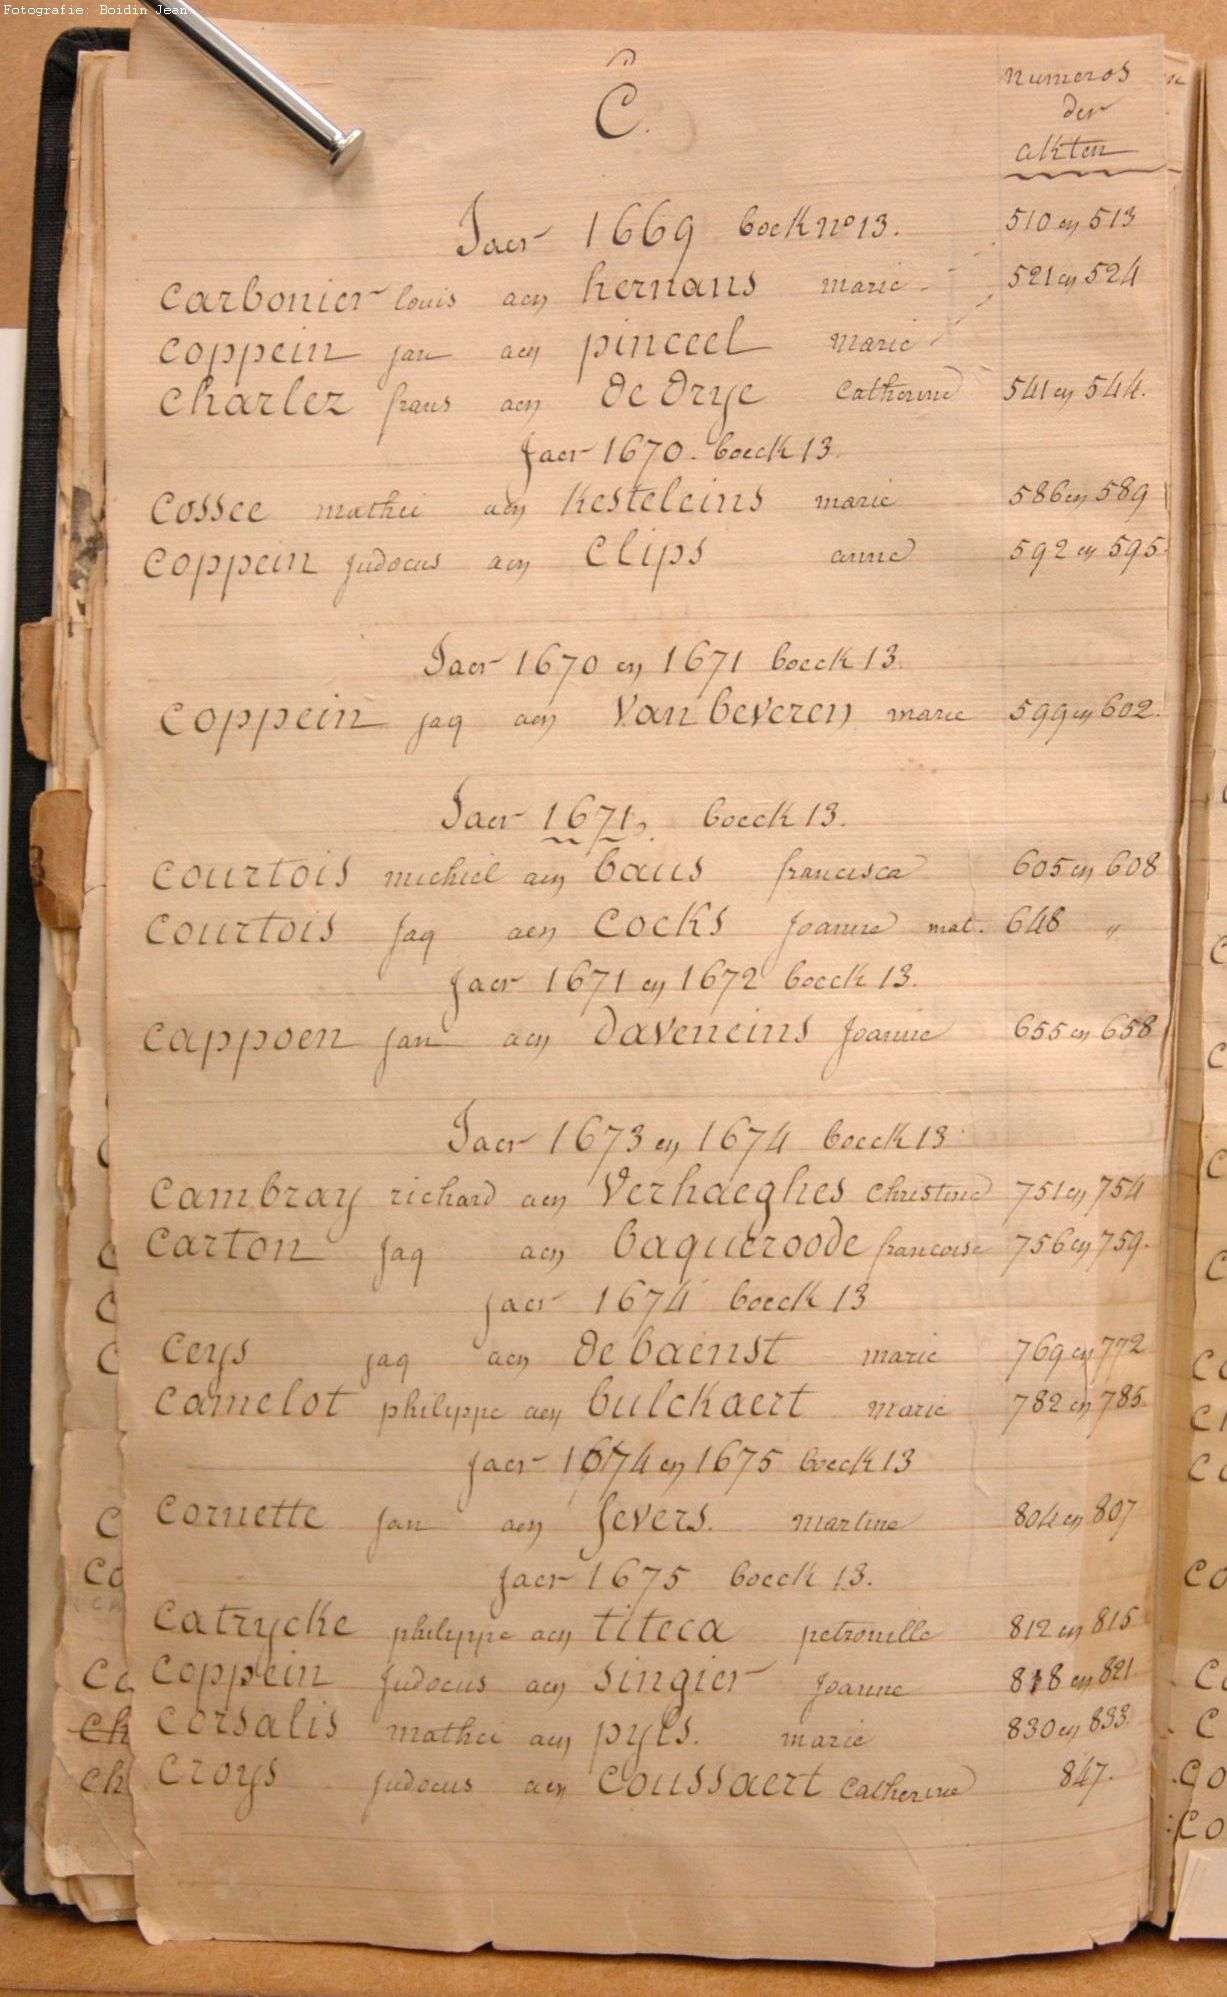 Fotografie: Boidin Jean
C.
numeros
der
akten
Jaer 1669 boek nº 13. 510 en 513
carbonier louis aen hernans marie 521 en 524
coppein jan aen pinceel marie
charlez frans aen de drye catherine 541 en 544.
Jaer 1670. boeck 13.
cossee mathei aen kesteleins marie 586 en 589
coppein judocus aen clips anne 592 en 595
Jaer 1670 en 1671 boeck 13.
coppein jaq aen van beveren marie 599 en 602.
Jaer 1671, boeck 13.
courtois michiel aen baus francisca 605 en 608
courtois jaq aen cocks joanne mat. 648 "
Jaer 1671 en 1672 boeck 13.
cappoen jan aen daveneins joanne 655 en 658
Jaer 1673 en 1674 boeck 13
cambray richard aen verhaeghes christine 751 en 754
carton jaq aen baqueroode francoise 756 en 759.
jaer 1674 boeck 13
ceys jaq aen de baenst marie 769 en 772
camelot philippe aen bulckaert marie 782 en 785
jaer 1674 en 1675 boeck 13
cornette jan aen fevers. martine 804 en 807
jaer 1675 boeck 13.
catrycke philippe aen titeca petronille 812 en 815
coppein judocus aen singier joanne 818 en 821
corsalis mathei aen pyes. marie 830 en 833.
croys judocus aen coussaert catherine 847.